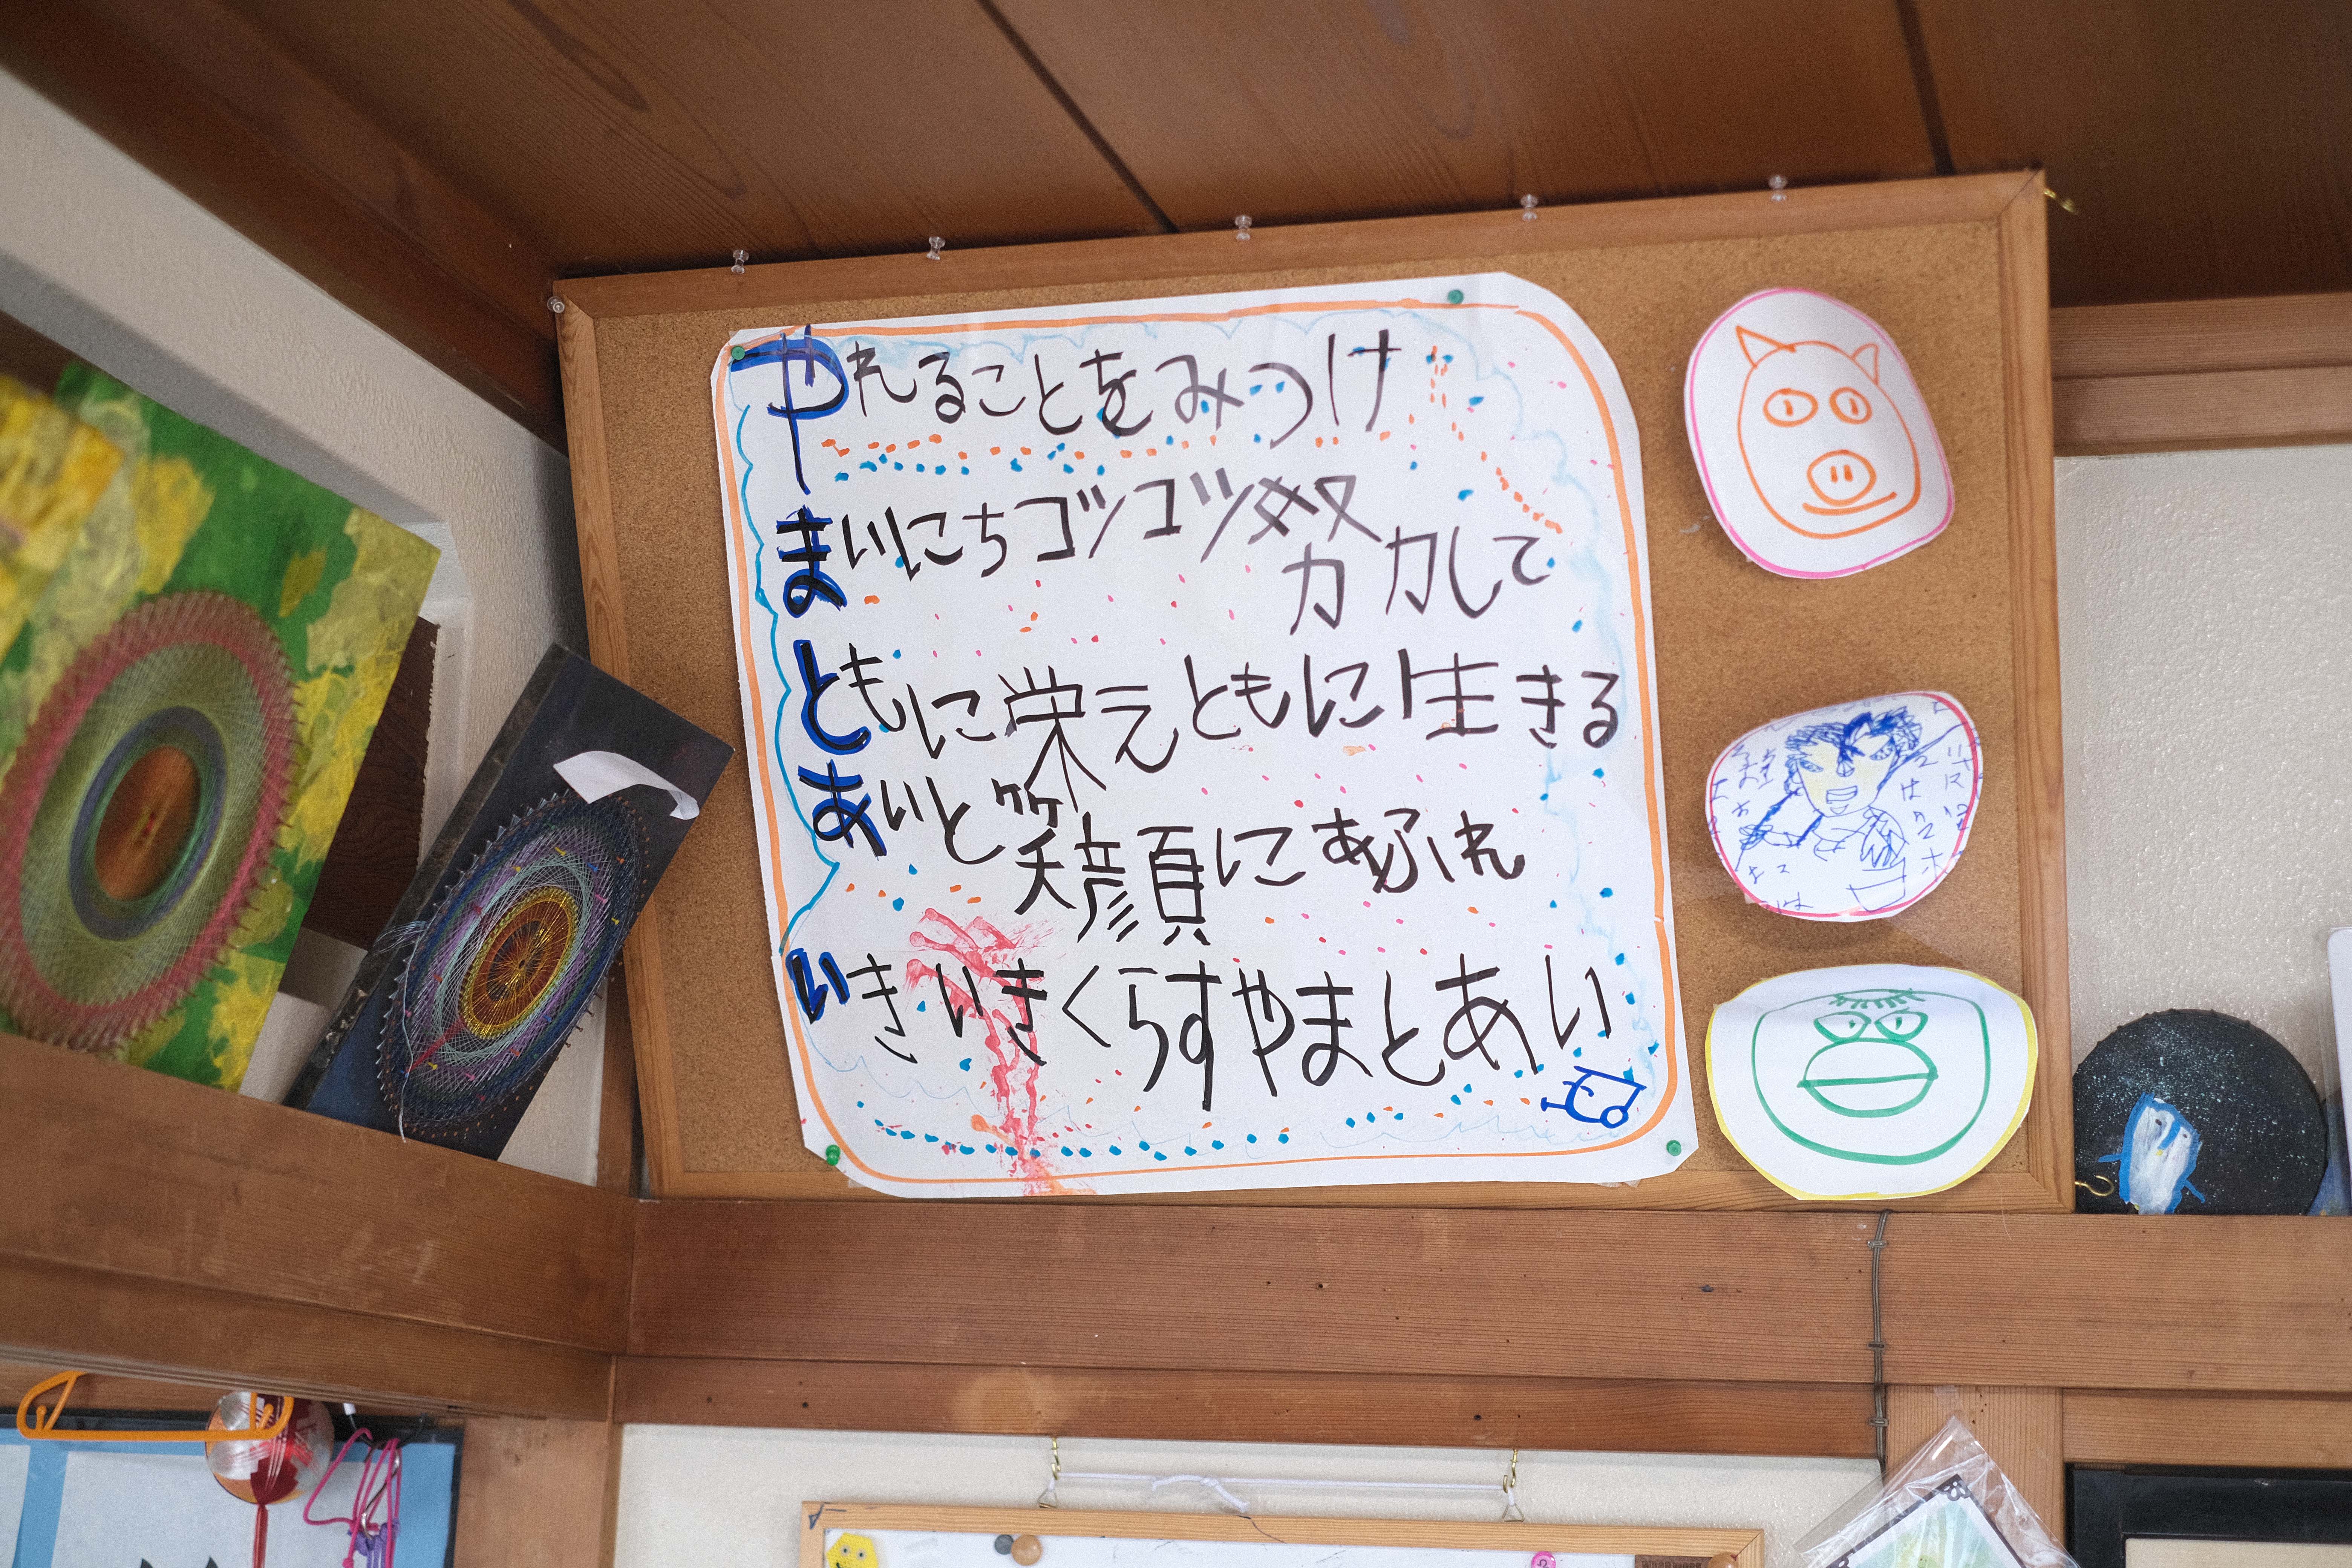 やれることをみつけ
まいにちコツコツ努力して
ともに栄えともに生きる
あいと笑顔にあふれ
いきいきくらすやまとあい